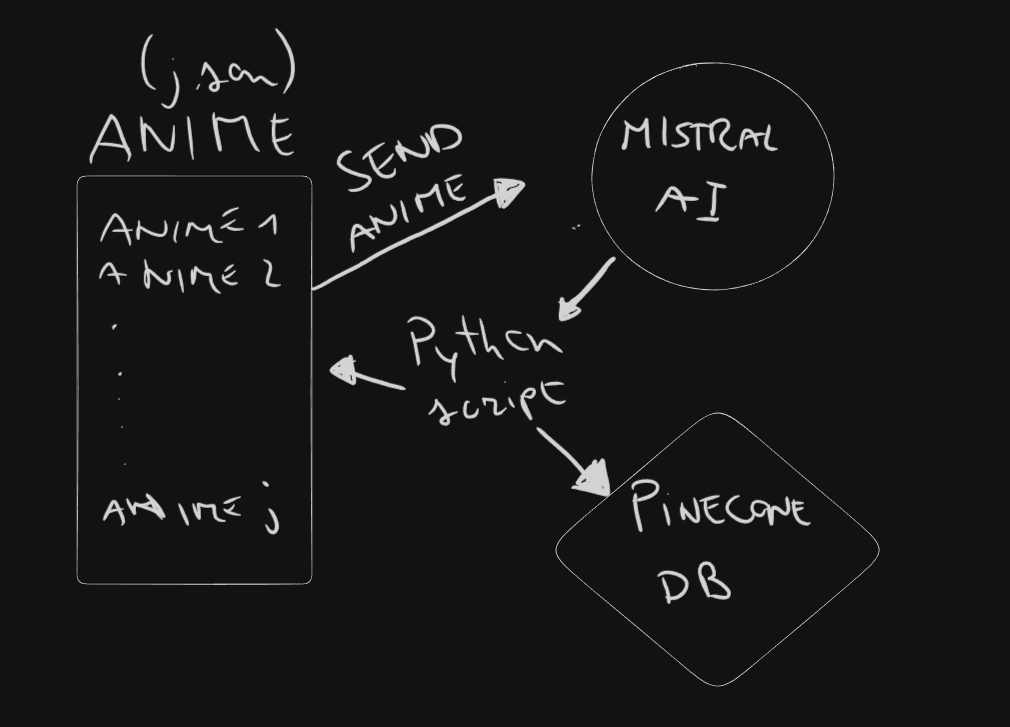 (json)
ANIME
ANIME 1
ANIME 2
.
.
.
.
.
ANIME j
SEND
ANIME
MISTRAL
AI
Python
script
PINECONE
DB